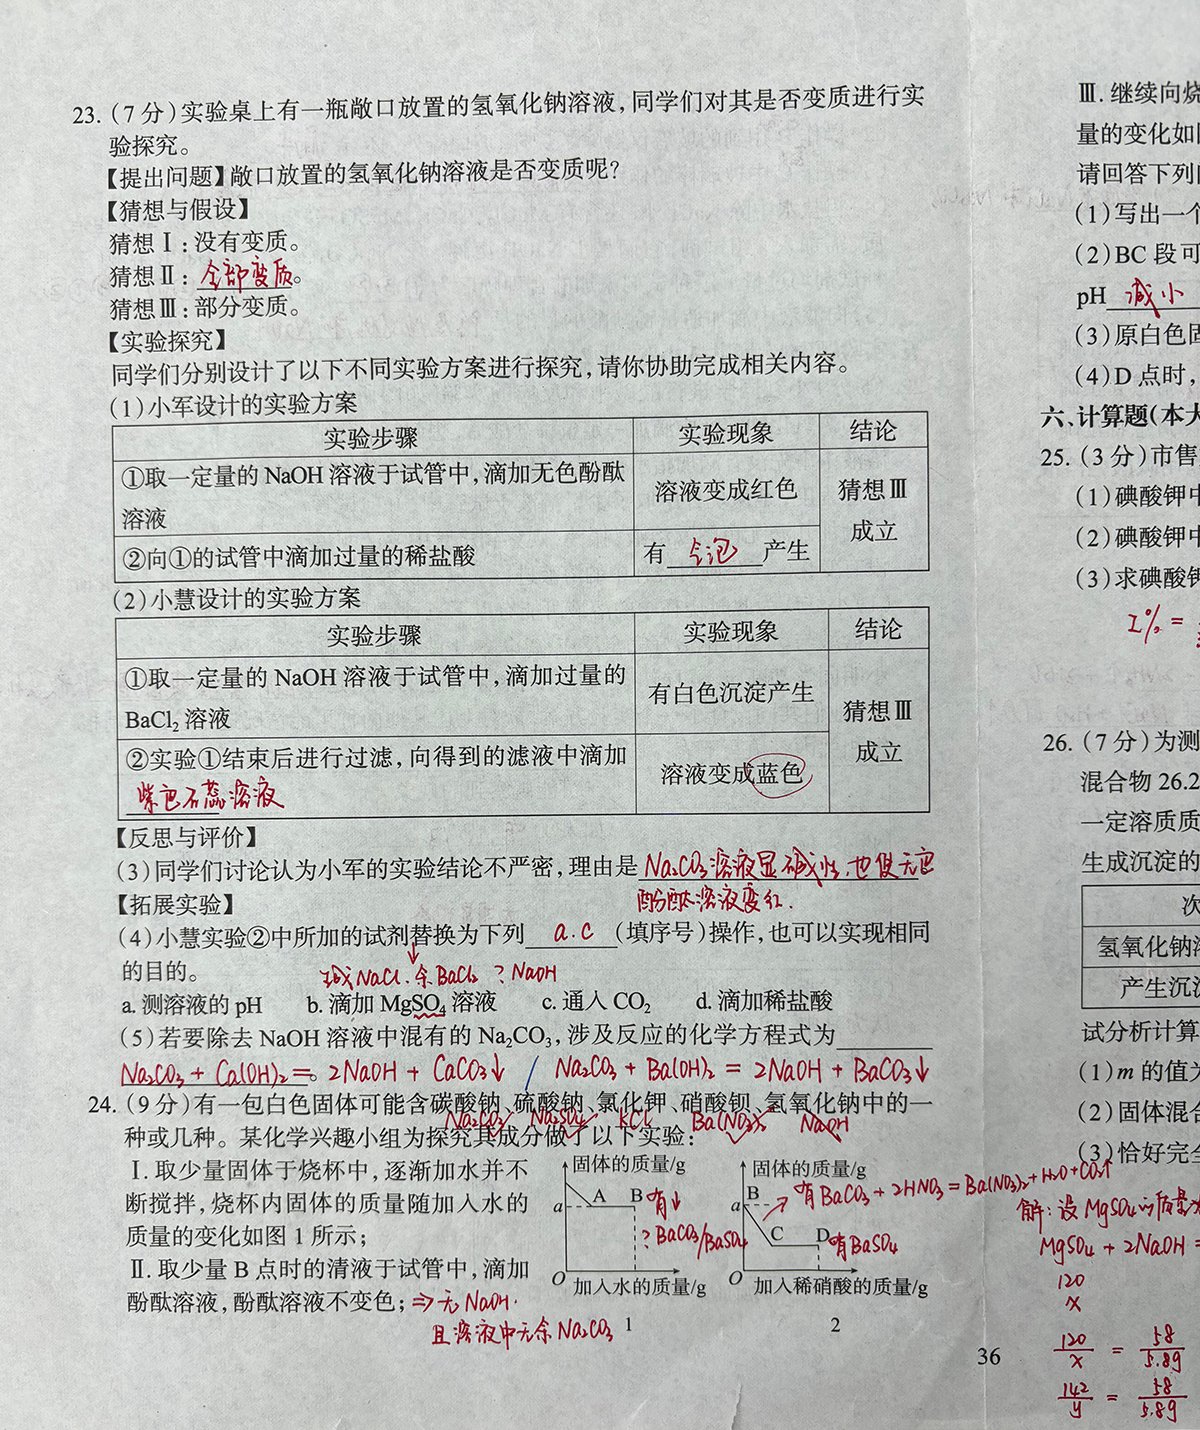 23.(7分)实验桌上有一瓶敞口放置的氢氧化钠溶液,同学们对其是否变质进行实
验探究。
【提出问题】敞口放置的氢氧化钠溶液是否变质呢?
【猜想与假设】
猜想Ⅰ:没有变质。
猜想Ⅱ:全部变质。
猜想Ⅲ:部分变质。
【实验探究】
同学们分别设计了以下不同实验方案进行探究,请你协助完成相关内容。
(1)小军设计的实验方案
实验步骤 实验现象 结论
①取一定量的 NaOH 溶液于试管中,滴加无色酚酞
溶液
溶液变成红色
②向①的试管中滴加过量的稀盐酸
有 气泡 产生
猜想Ⅲ
成立
(2)小慧设计的实验方案
实验步骤 实验现象 结论
①取一定量的 NaOH 溶液于试管中,滴加过量的
BaCl₂ 溶液
有白色沉淀产生
②实验①结束后进行过滤,向得到的滤液中滴加
紫色石蕊溶液
溶液变成蓝色
猜想Ⅲ
成立
【反思与评价】
(3)同学们讨论认为小军的实验结论不严密,理由是 Na₂CO₃溶液显碱性,也使无色
酚酞溶液变红.
【拓展实验】
(4)小慧实验②中所加的试剂替换为下列 a.c (填序号)操作,也可以实现相同
的目的。
NaCl.余BaCl₂ ?NaOH
a. 测溶液的 pH b. 滴加 MgSO₄ 溶液 c. 通入 CO₂ d. 滴加稀盐酸
(5)若要除去 NaOH 溶液中混有的 Na₂CO₃,涉及反应的化学方程式为
Na₂CO₃ + Ca(OH)₂ = 2NaOH + CaCO₃↓ / Na₂CO₃ + Ba(OH)₂ = 2NaOH + BaCO₃↓
。
24.(9分)有一包白色固体可能含碳酸钠、硫酸钠、氯化钾、硝酸钡、氢氧化钠中的一
Na₂CO₃ Na₂SO₄ KCl Ba(NO₃)₂ NaOH
种或几种。某化学兴趣小组为探究其成分做了以下实验:
Ⅰ. 取少量固体于烧杯中,逐渐加水并不
断搅拌,烧杯内固体的质量随加入水的
质量的变化如图 1 所示;
Ⅱ. 取少量 B 点时的清液于试管中,滴加
酚酞溶液,酚酞溶液不变色;⇒无NaOH.
且溶液中无余Na₂CO₃
固体的质量/g
a
A B 有↓
?BaCO₃/BaSO₄
O 加入水的质量/g
1
固体的质量/g
B
a
有BaCO₃ + 2HNO₃ = Ba(NO₃)₂ + H₂O + CO₂↑
C D 有BaSO₄
O 加入稀硝酸的质量/g
2
36
Ⅲ. 继续向烧
量的变化如
请回答下列
(1)写出一个
(2)BC 段可
pH 减小
(3)原白色固
(4)D 点时,
六、计算题(本大
25.(3分)市售
(1)碘酸钾中
(2)碘酸钾中
(3)求碘酸钾
I% =
26.(7分)为测
混合物 26.2
一定溶质质
生成沉淀的
次
氢氧化钠溶
产生沉淀
试分析计算
(1)m 的值为
(2)固体混合
(3)恰好完全
解:设MgSO₄的质量
MgSO₄ + 2NaOH =
120
x
120/x = 58/5.8g
142/y = 58/5.8g